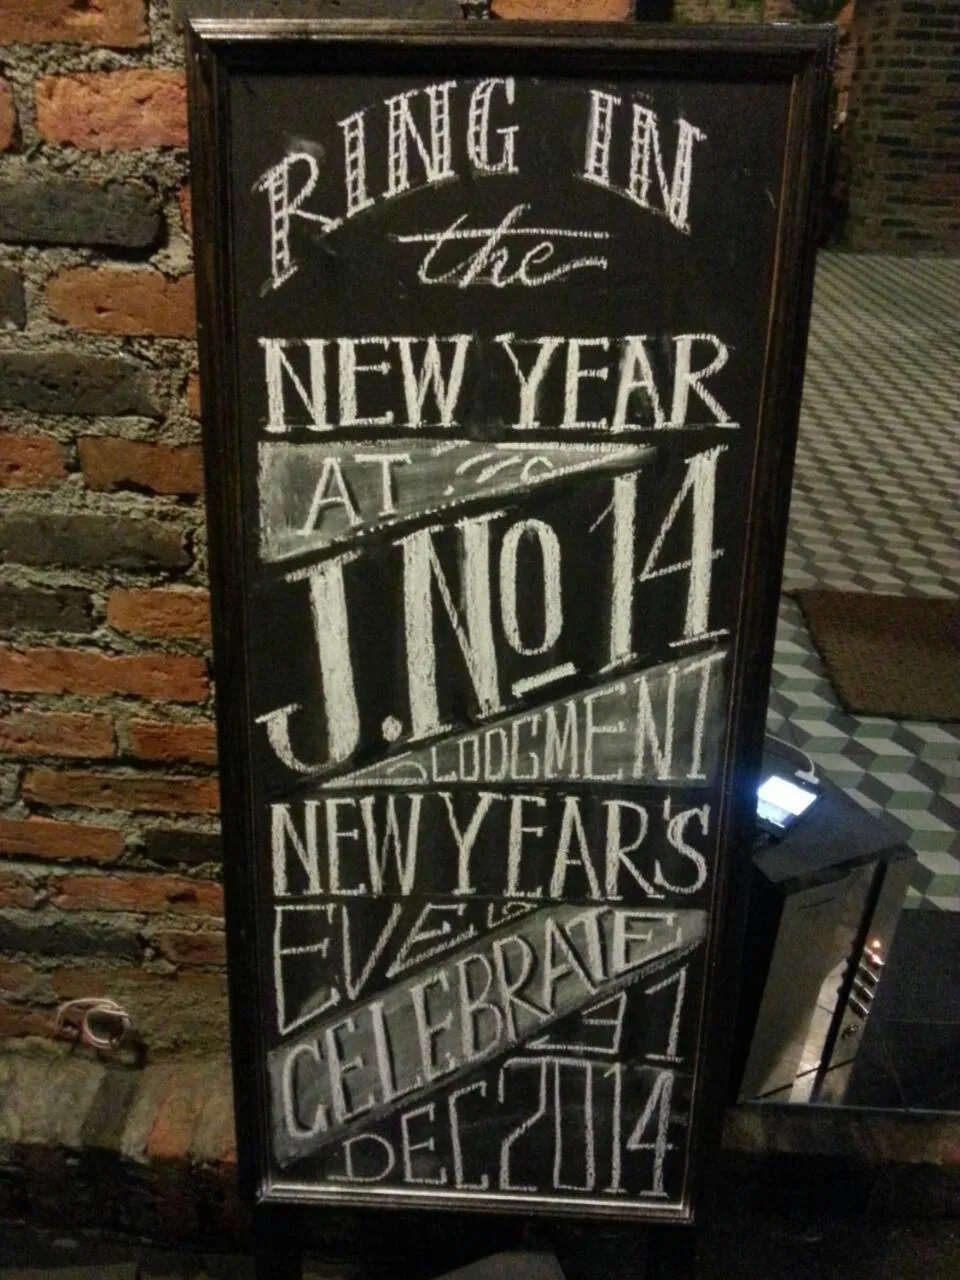 RING IN
the
NEW YEAR
AT
J.No 14
LODGMENT
NEW YEAR'S
EVE
CELEBRATE
31
DEC 2014